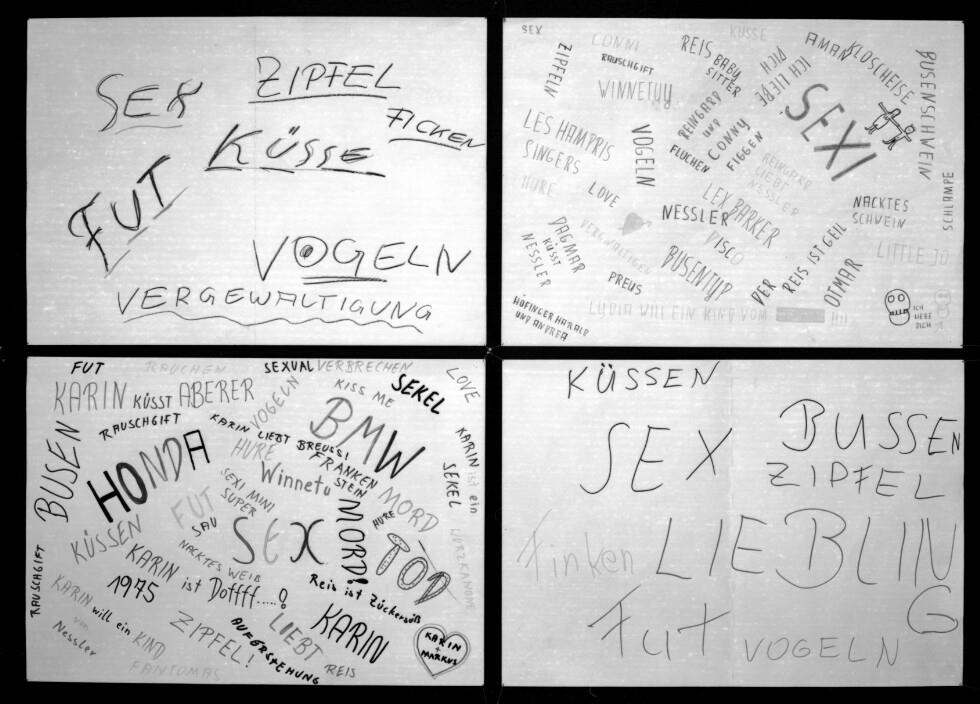 SEX
ZIPFEL
FICKEN
KÜSSE
FUT
VOGELN
VERGEWALTIGUNG
SEX
CONNI
KÜSSE
ZIPFELN
RAUSCHGIFT
WINNETUU
REIS BABY
SITTER
ICH LIEBE
DICH
AMAN
KLOSCHEISE
BUSENSCHWEIN
SEXI
LES HAMPRIS
SINGERS
VOGELN
REINGARD
UND
CONNY
FIGGEN
FLUCHEN
REINGARD
LIEBT
NESSLER
HURE
LOVE
NESSLER
LEX BARKER
DISCO
NACKTES
SCHWEIN
SCHLAMPE
LITTLE JO
VERGEWALTIGEN
DAGMAR
KÜSST
NESSLER
PREUS
BUSENTYP
DER
REIS IST GEIL
OTMAR
ICH
LIEBE
DICH
HÖFINGER HARALD
UND ANDREA
LYDIA WILL EIN KIND VOM
FUT
RAUCHEN
SEXUAL VERBRECHEN
LOVE
KARIN KÜSST ABERER
VOGELN
KISS ME
SEKEL
RAUSCHGIFT
KARIN LIEBT BREUSS!
BMW
BUSEN
HONDA
HURE
FRANKEN
STEIN
KARIN ist ein
SEKEL
Winnetu
SEXI MINI
SUPER
MORD
FUT
SAU
SEX
MORD!
HURE
TOD
WURZKANONE
KÜSSEN
NACKTES WEIB
RAUSCHGIFT
KARIN ist Doffff.....!
1975
Reis ist Zückersüß
KARIN
will ein KIND
von
Nessler
ZIPFEL!
AUFERSTEHUNG
LIEBT
KARIN
REIS
KARIN
+
MARKUS
FANTOMAS
KÜSSEN
SEX
BUSSEN
ZIPFEL
Finken
LIEBLIN
G
Fut
VOGELN